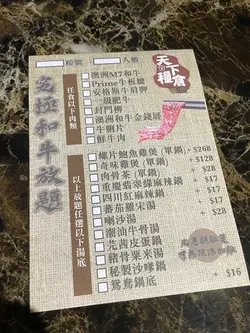 枱號 人數
天下糧倉
究極和牛放題
任食以下肉類
澳洲M7和牛
Prime牛板腱
安格斯牛肩胛
一級肥牛
封門柳
澳洲和牛金錢𦟌
牛脷片
鮮牛肉
以上放題任選以下湯底
螺片鮑魚雞煲(單鍋) +$268
奇味雞煲(單鍋) +$128
肉骨茶(單鍋) +$28
重慶翡翠綠麻辣鍋 +$28
四川紅麻辣鍋 +$28
番茄羅宋湯 +$28
喇沙湯
潮汕牛骨湯
芫茜皮蛋鍋
豬骨粟米湯
秘製沙嗲鍋
鴛鴦鍋底 $16